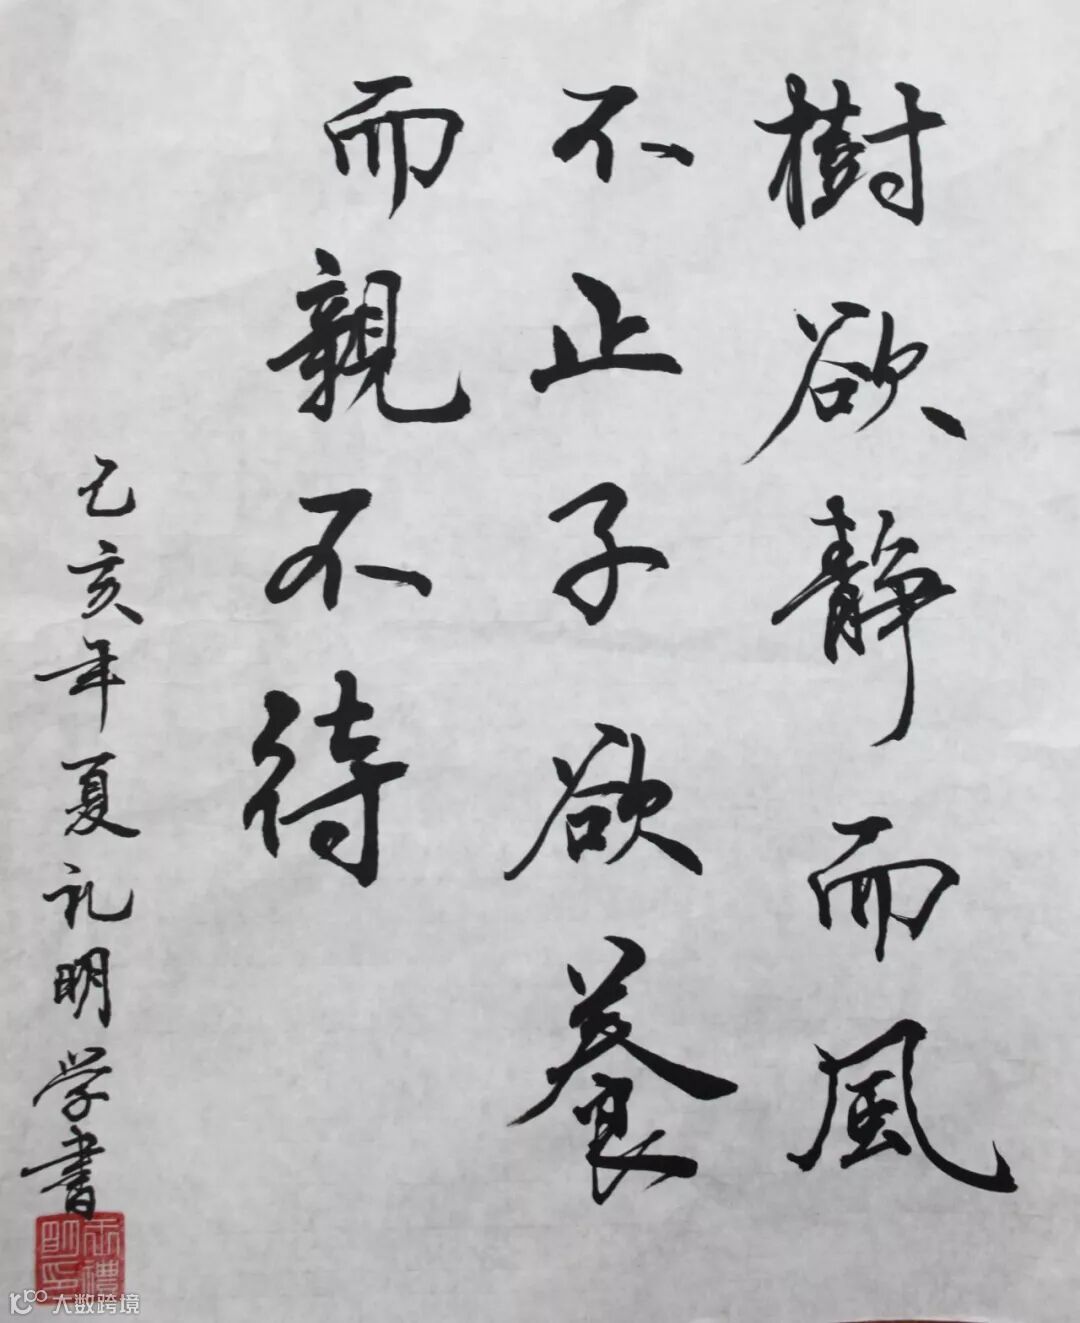 樹欲靜而風
不止子欲養
而親不待
己亥年夏礼明学書
大数跨境